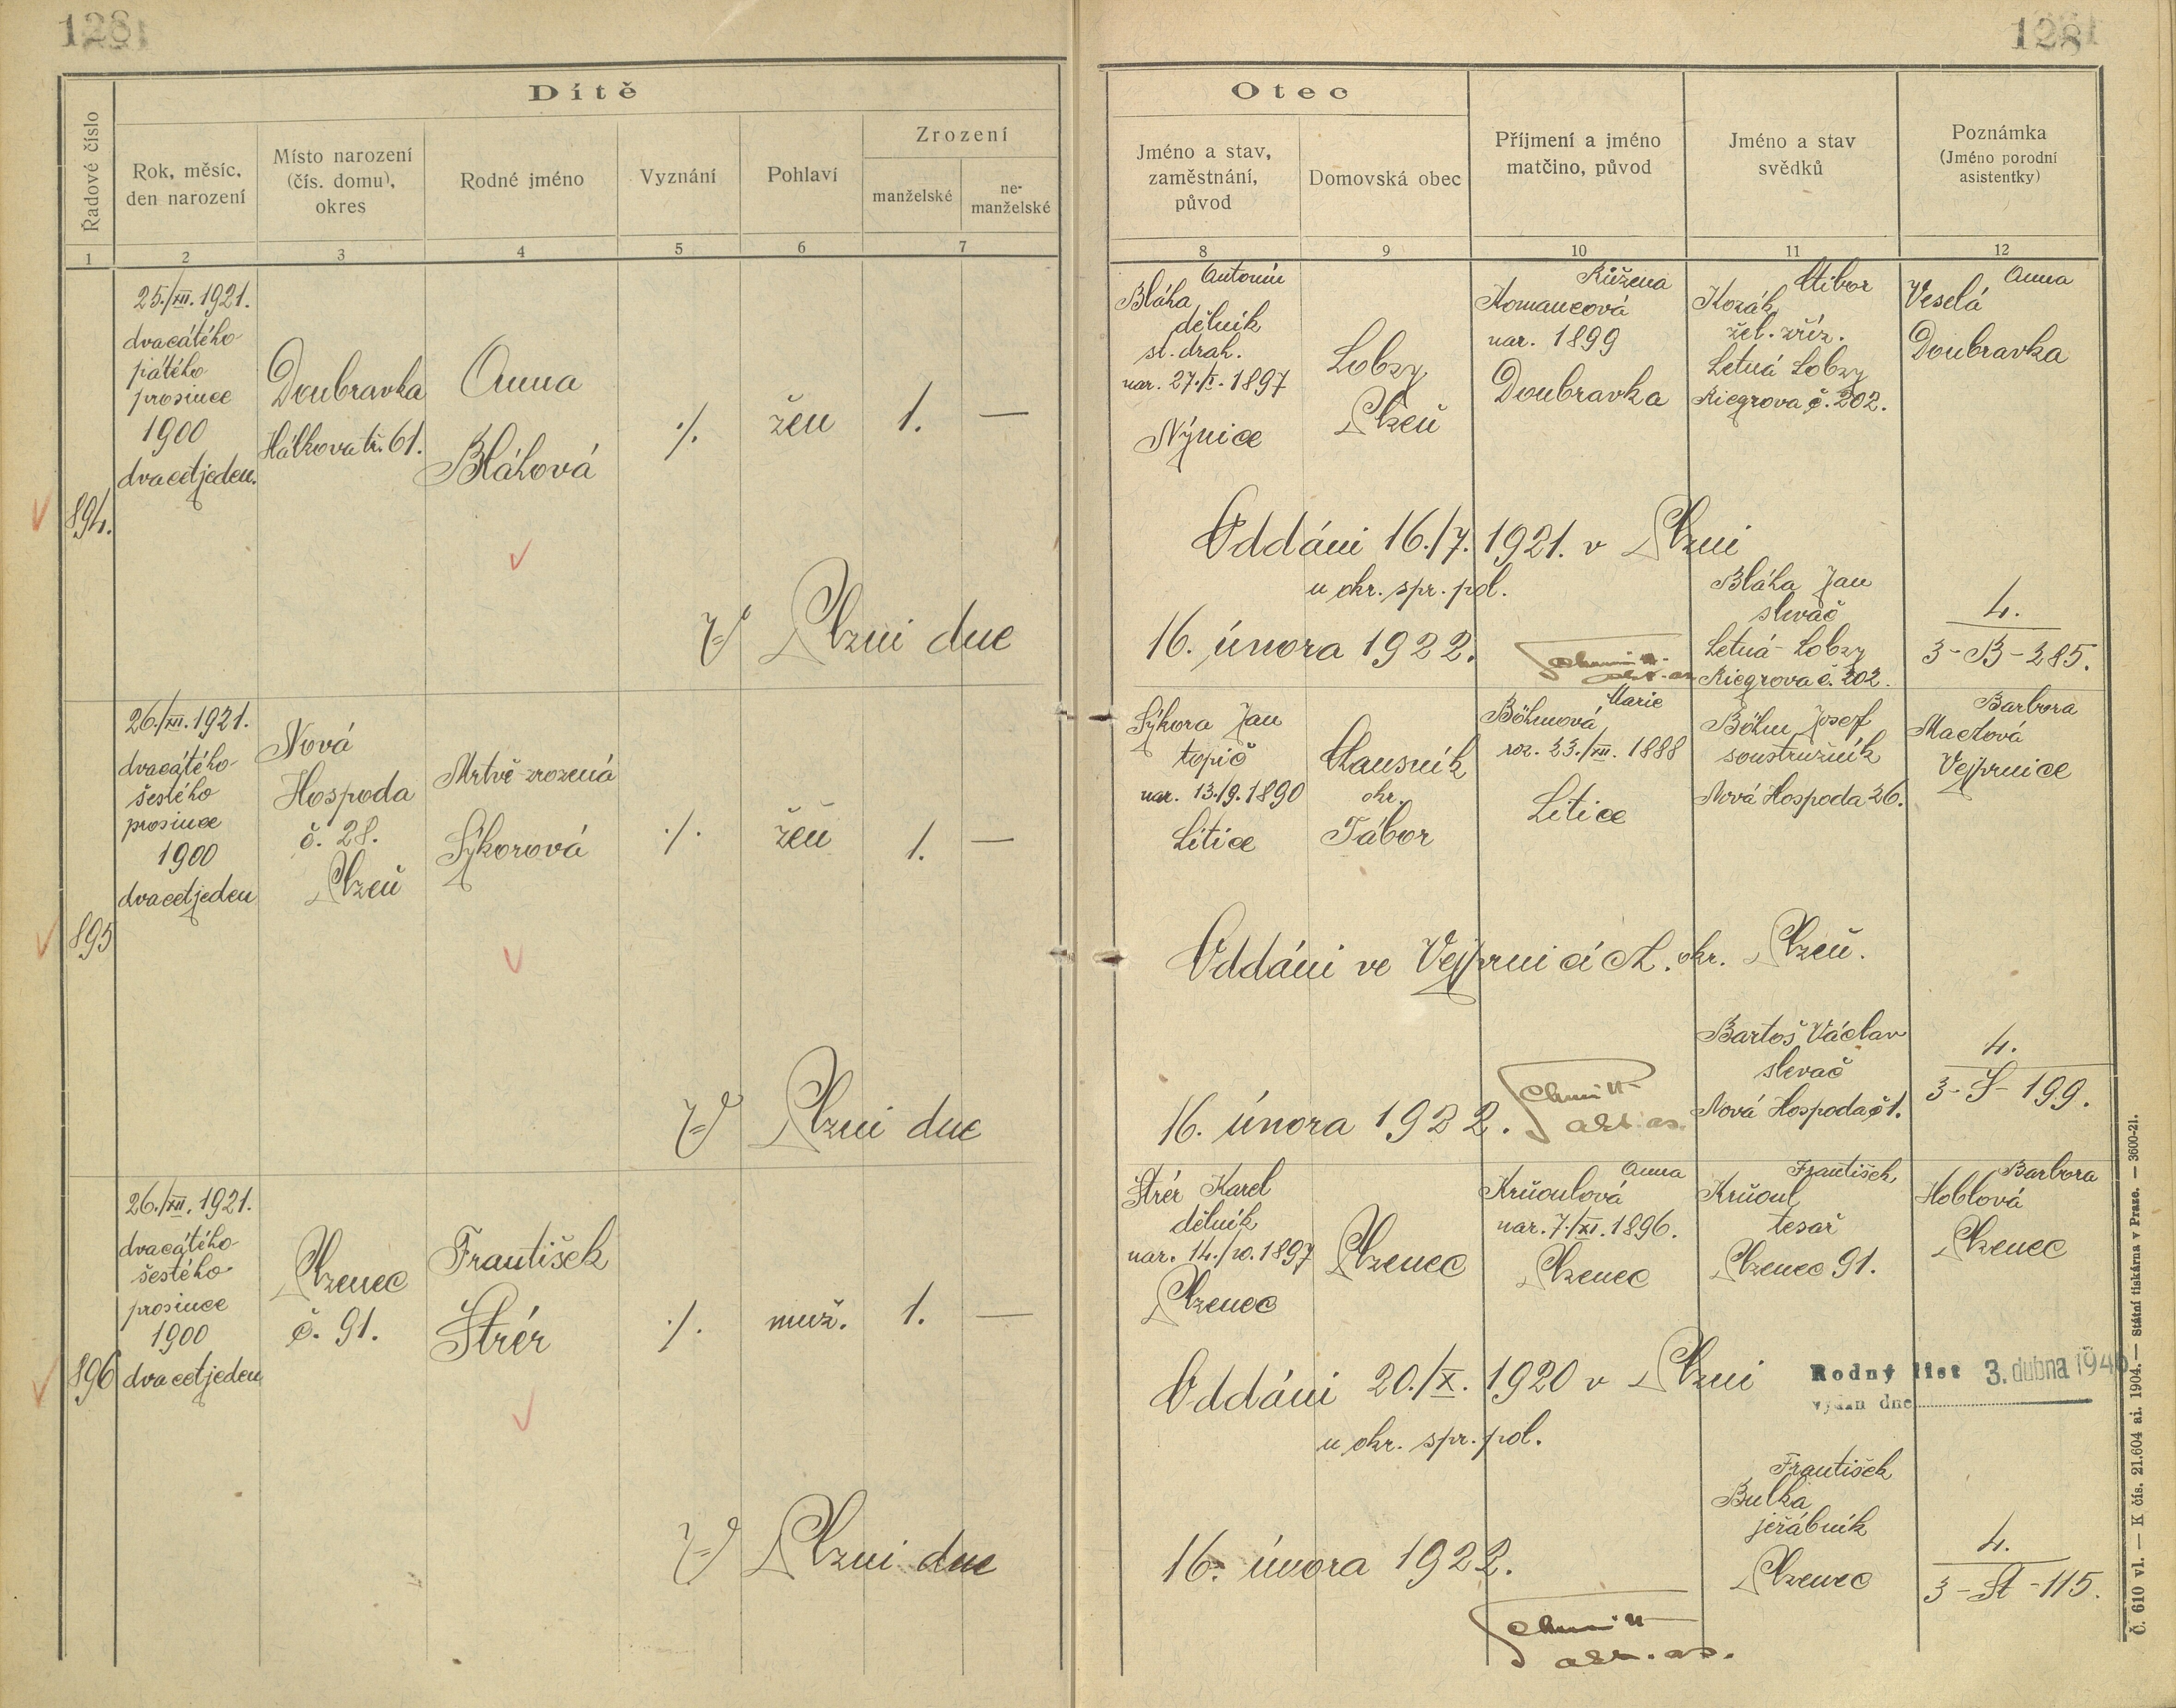 128
128
Dítě
Řadové číslo
Rok, měsíc,
den narození
Místo narození
(čís. domu),
okres
Rodné jméno
Vyznání
Pohlaví
Zrození
manželské
ne-
manželské
1
2
3
4
5
6
7
Otec
Jméno a stav,
zaměstnání,
původ
Domovská obec
Příjmení a jméno
matčino, původ
Jméno a stav
svědků
Poznámka
(Jméno porodní
asistentky)
8
9
10
11
12
894.
25./XII. 1921.
dvacátého
pátého
prosince
1900
dvacetjeden.
Doubravka
Hálkova tř. 61.
Anna
Bláhová
./.
žen
1.
—
V Plzni dne
Antonín
Bláha
dělník
st. drah.
nar. 27./X. 1897
Nýnice
Lobzy
Plzeň
Růžena
Komancová
nar. 1899
Doubravka
Ctibor
Kozák
žel. zříz.
Letná Lobzy
Riegrova č. 202.
Anna
Veselá
Doubravka
Oddáni 16./7. 1921. v Plzni
u okr. spr. pol.
16. února 1922.
Schmitt
Bláha Jan
slevač
Letná-Lobzy
Riegrova č. 202.
4.
3-B-285.
895
26./XII. 1921.
dvacátého
šestého
prosince
1900
dvacetjeden
Nová
Hospoda
č. 28.
Plzeň
Mrtvě zrozená
Sýkorová
./.
žen
1.
—
V Plzni dne
Sýkora Jan
topič
nar. 13./9. 1890
Litice
Chausník
okr.
Tábor
Marie
Böhmová
roz. 23./XII. 1888
Litice
Böhm Josef
soustružník
Nová Hospoda 26.
Barbora
Vejprnice
Oddáni ve Vejprnicích. okr. Plzeň.
16. února 1922.
Schmitt
akt. as.
Bartoš Václav
slevač
Nová Hospoda č 1.
4.
3-S-199.
896
26./XII. 1921.
dvacátého
šestého
prosince
1900
dvacetjeden
Plzenec
č. 91.
František
Štrér
./.
muž.
1.
—
V Plzni dne
Štrér Karel
dělník
nar. 14./10. 1897
Plzenec
Plzenec
Anna
Krůoulová
nar. 7./XI. 1896.
Plzenec
František
Krůoul
tesař
Plzenec 91.
Barbora
Hoblová
Plzenec
Oddáni 20./X. 1920 v Plzni
u okr. spr. pol.
Rodný list 3. dubna 1946
vydán dne
16. února 1922.
Schmitt
akt. as.
František
Bulka
jeřábník
Plzenec
4.
3-St-115.
Č. 610 vl. — K čís. 21.604 ai. 1904. — Státní tiskárna v Praze. — 3600-21.